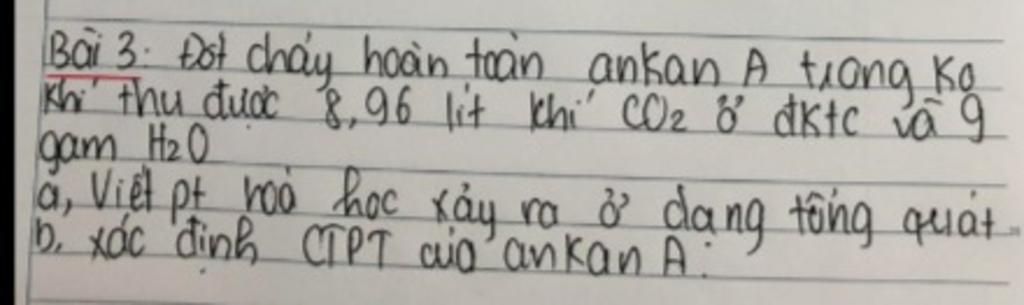 Bài 3: Đốt cháy hoàn toàn ankan A trong Ko
khí thu được 8,96 lít khí CO2 ở đktc và 9
gam H2O
a, Viết pt hoá học xảy ra ở dạng tổng quát
b. xác định CTPT của ankan A.